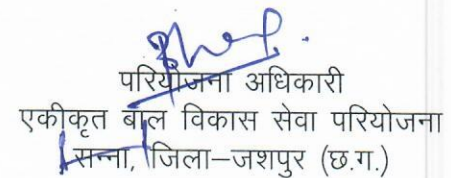 परियोजना अधिकारी
एकीकृत बाल विकास सेवा परियोजना
सन्ना, जिला–जशपुर (छ.ग.)